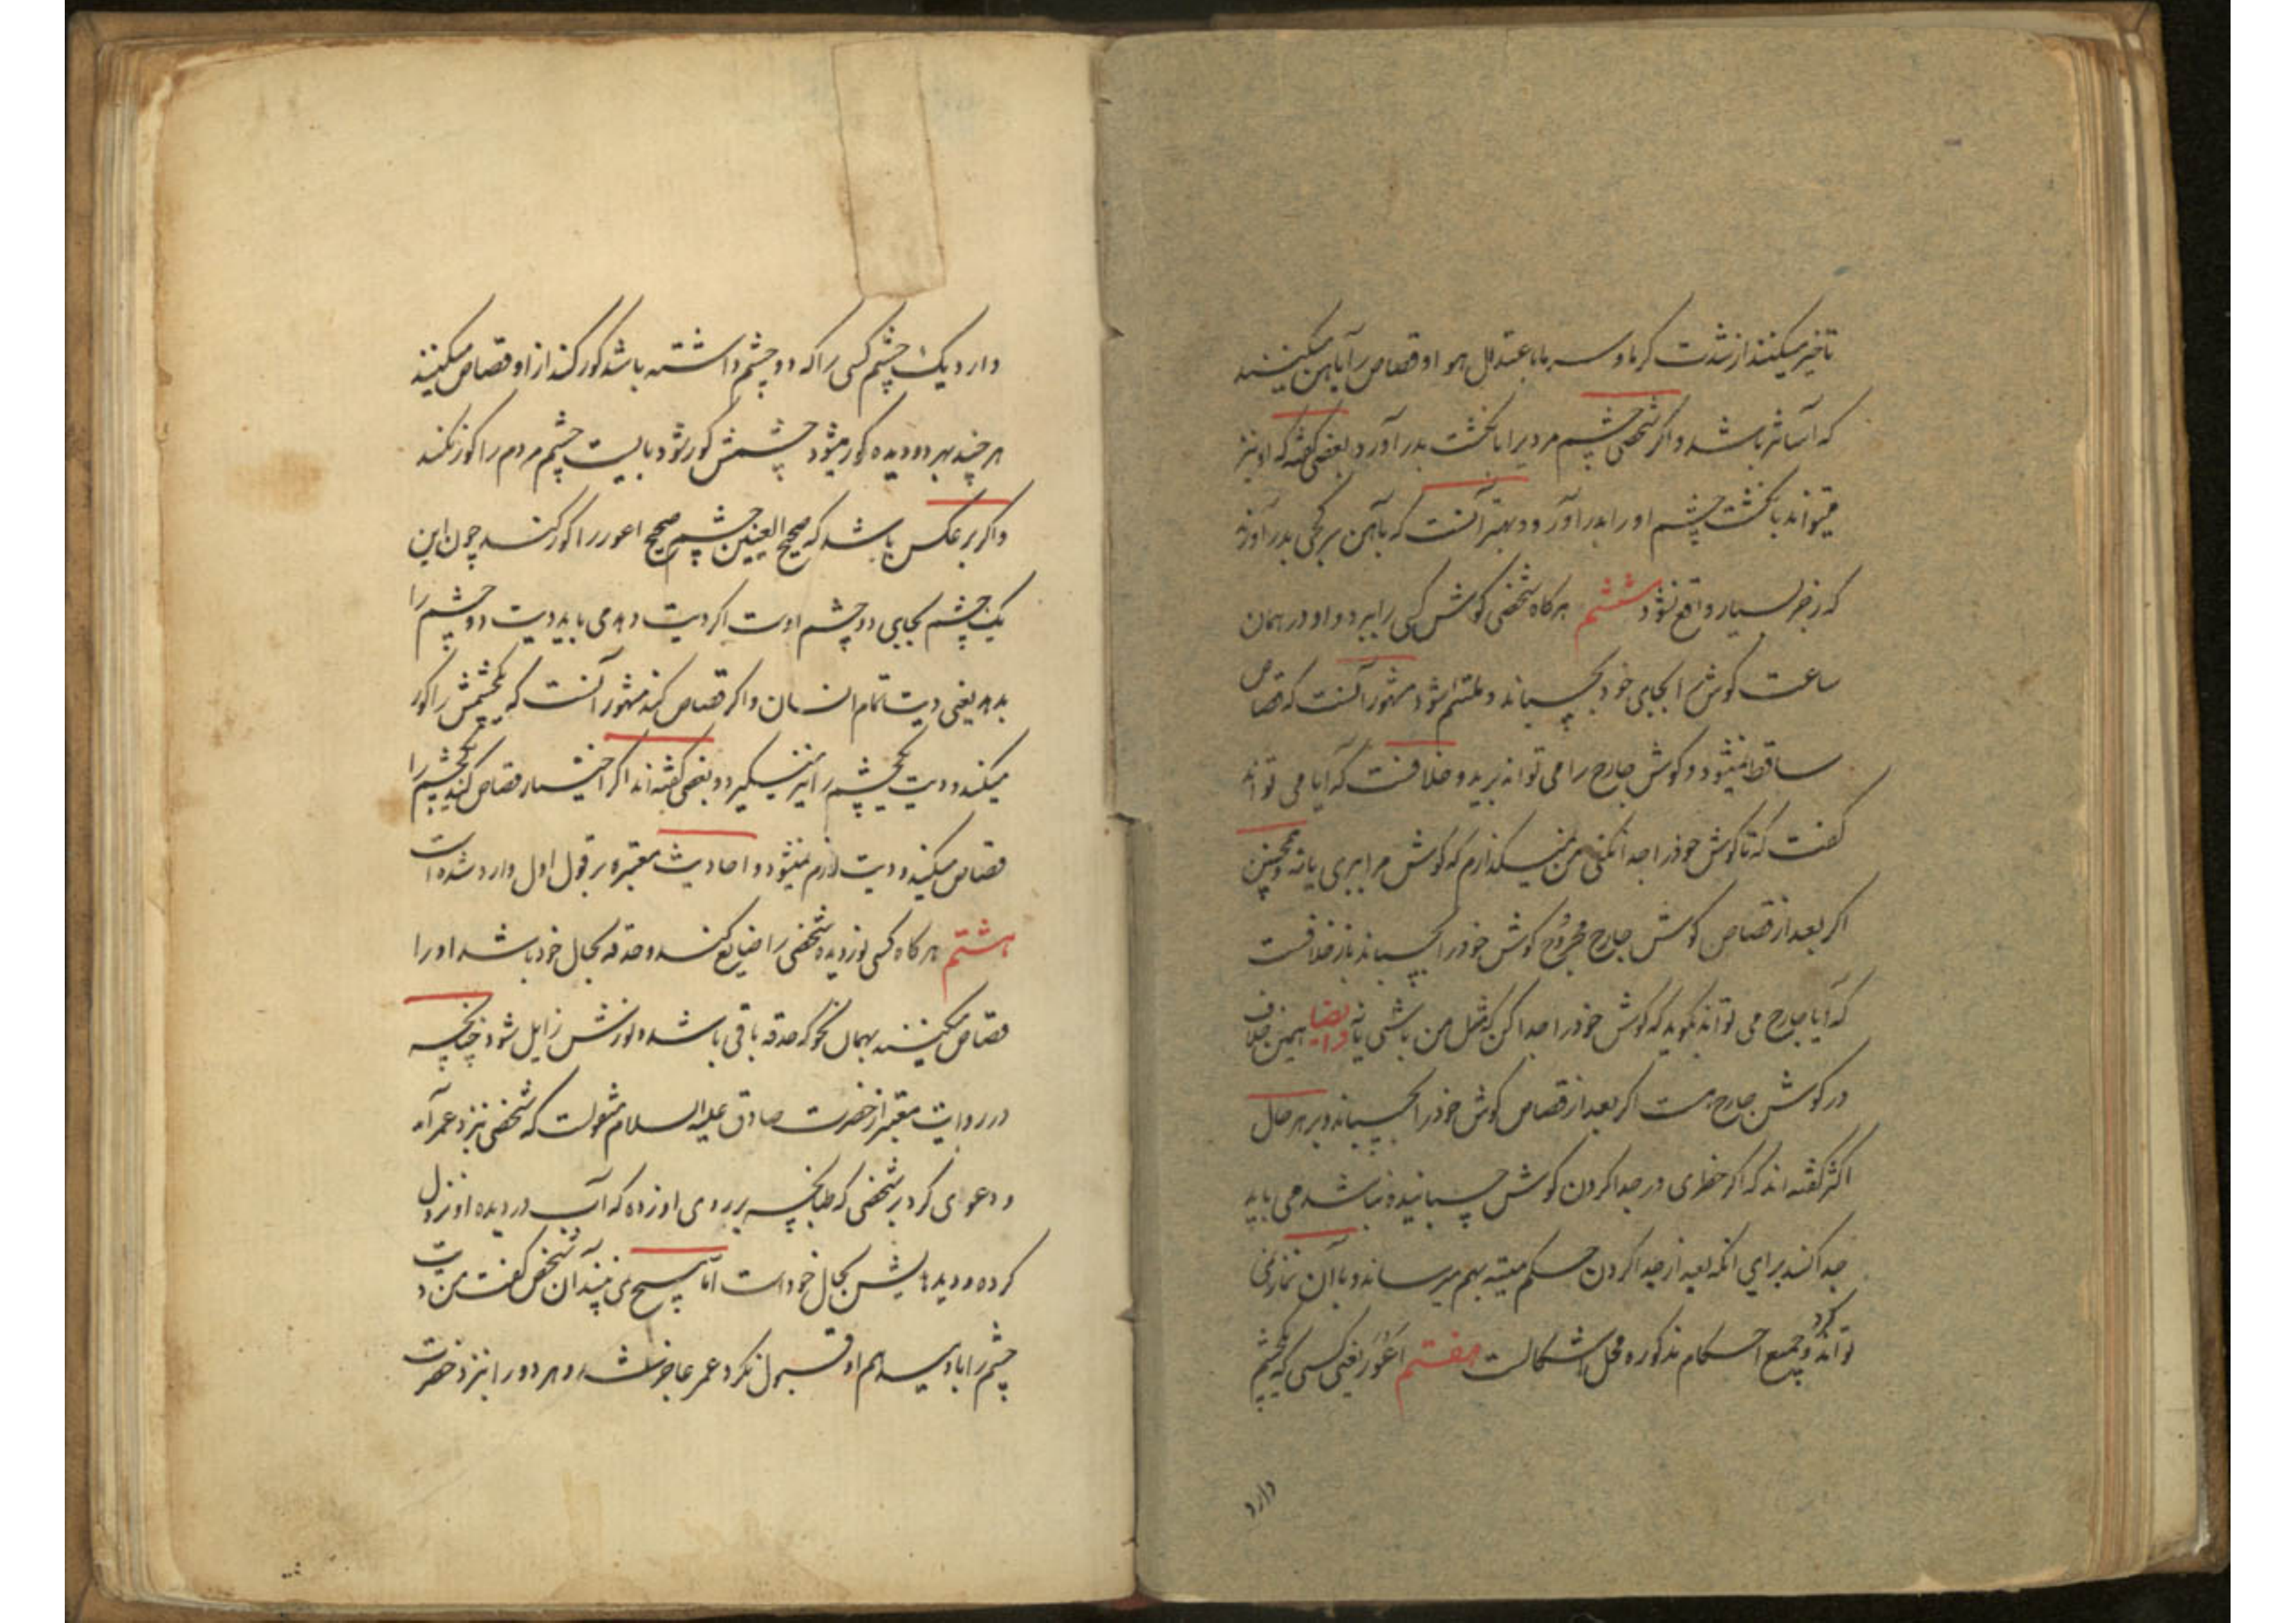 تاخیر میکنند از شدت کرما و سرما با عتدال هوا و قصاص را بآهن میکنند
که آسانتر باشد و اکر شخصی چشم مردیرا بانکشت بدر آورد بعضی کفته‌اند که او نیز
میتواند بانکشت چشم او را بدر آورد و بهتر آنست که بآهن سر کجی بدر آورد
که زجر بسیار واقع نشود ششم هر کاه شخصی کوش کسی را ببرد و او در همان
ساعت کوش را بجای خود بچسباند و ملتئم شود مشهور آنست که قصاص
ساقط نمیشود و کوش جارح را می تواند برید و خلافست که آیا می تواند
کفت که تا کوش خود را جدا نکنی من نمیکذارم که کوش مرا ببری یا نه و همچنین
اکر بعد از قصاص کوش جارح مجروح کوش خود را بچسباند باز خلافست
که آیا جارح می تواند بکوید که کوش خود را جدا کن که مثل من باشی یا نه و ایضا همین خلاف
در کوش جارح هست اکر بعد از قصاص کوش خود را بچسباند و بر هر حال
اکثر کفته اند که اکر خطری در جدا کردن کوش چسبانیده نباشد می باید
جدا کنند برای آنکه بعد از جدا کردن حکم میته بهم میرساند و با آن نماز نمی
تواند کرد و جمیع احکام مذکوره محل اشکالست هفتم اعور یعنی کسی که یکچشم
دارد
دارد یک چشم کسی را که دو چشم داشته باشد کور کند از او قصاص میکنند
هر چند بهر دو دیده کور میشود چشمش کور شود بایست چشم مردم را کور نکند
و اکر بر عکس باشد که صحیح العینین چشم صحیح اعور را کور کند چون این
یک چشم بجای دو چشم اوست اکر دیت دهد می باید دیت دو چشم را
بدهد یعنی دیت تمام انسان و اکر قصاص کند مشهور آنست که یکچشمش را کور
میکند و دیت یکچشم را نیز میکیرد و بعضی کفته اند اکر اختیار قصاص کند یکچشم را
قصاص میکند و دیت لازم نمیشود و احادیث معتبره بر قول اول وارد شده است
هشتم هر کاه کسی نور دیده شخصی را ضایع کند و حدقه بحال خود باشد او را
قصاص میکنند بهمان نحو که حدقه باقی باشد و نورش زایل شود چنانچه
در روایت معتبر از حضرت صادق علیه السلام منقولست که شخصی نزد عمر آمد
و دعوی کرد بر شخصی که طپانچه بر روی او زده که آب در دیده او نزول
کرده و دیده هایش بحال خود است اما هیچ نمی بیند آن شخص کفت من دیت
چشم را باو میدهم او قبول نکرد عمر عاجز شد و هر دو را نزد حضرت